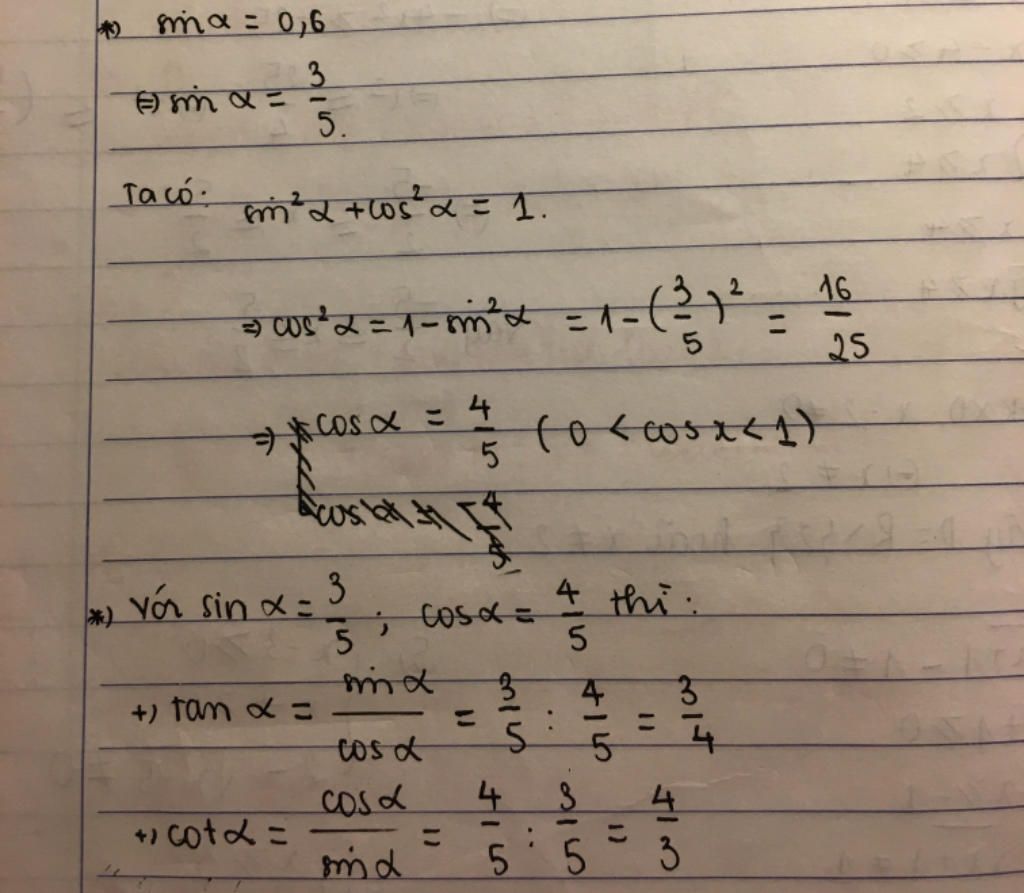 *) sin α = 0,6
⇔ sin α = 3/5.
Ta có: sin²α + cos²α = 1.
⇒ cos²α = 1 - sin²α = 1 - (3/5)² = 16/25
⇒ cos α = 4/5 (0 < cos x < 1)
cos α = -4/5
*) Với sin α = 3/5 ; cos α = 4/5 thì :
+) tan α = sin α / cos α = 3/5 : 4/5 = 3/4
+) cot α = cos α / sin α = 4/5 : 3/5 = 4/3